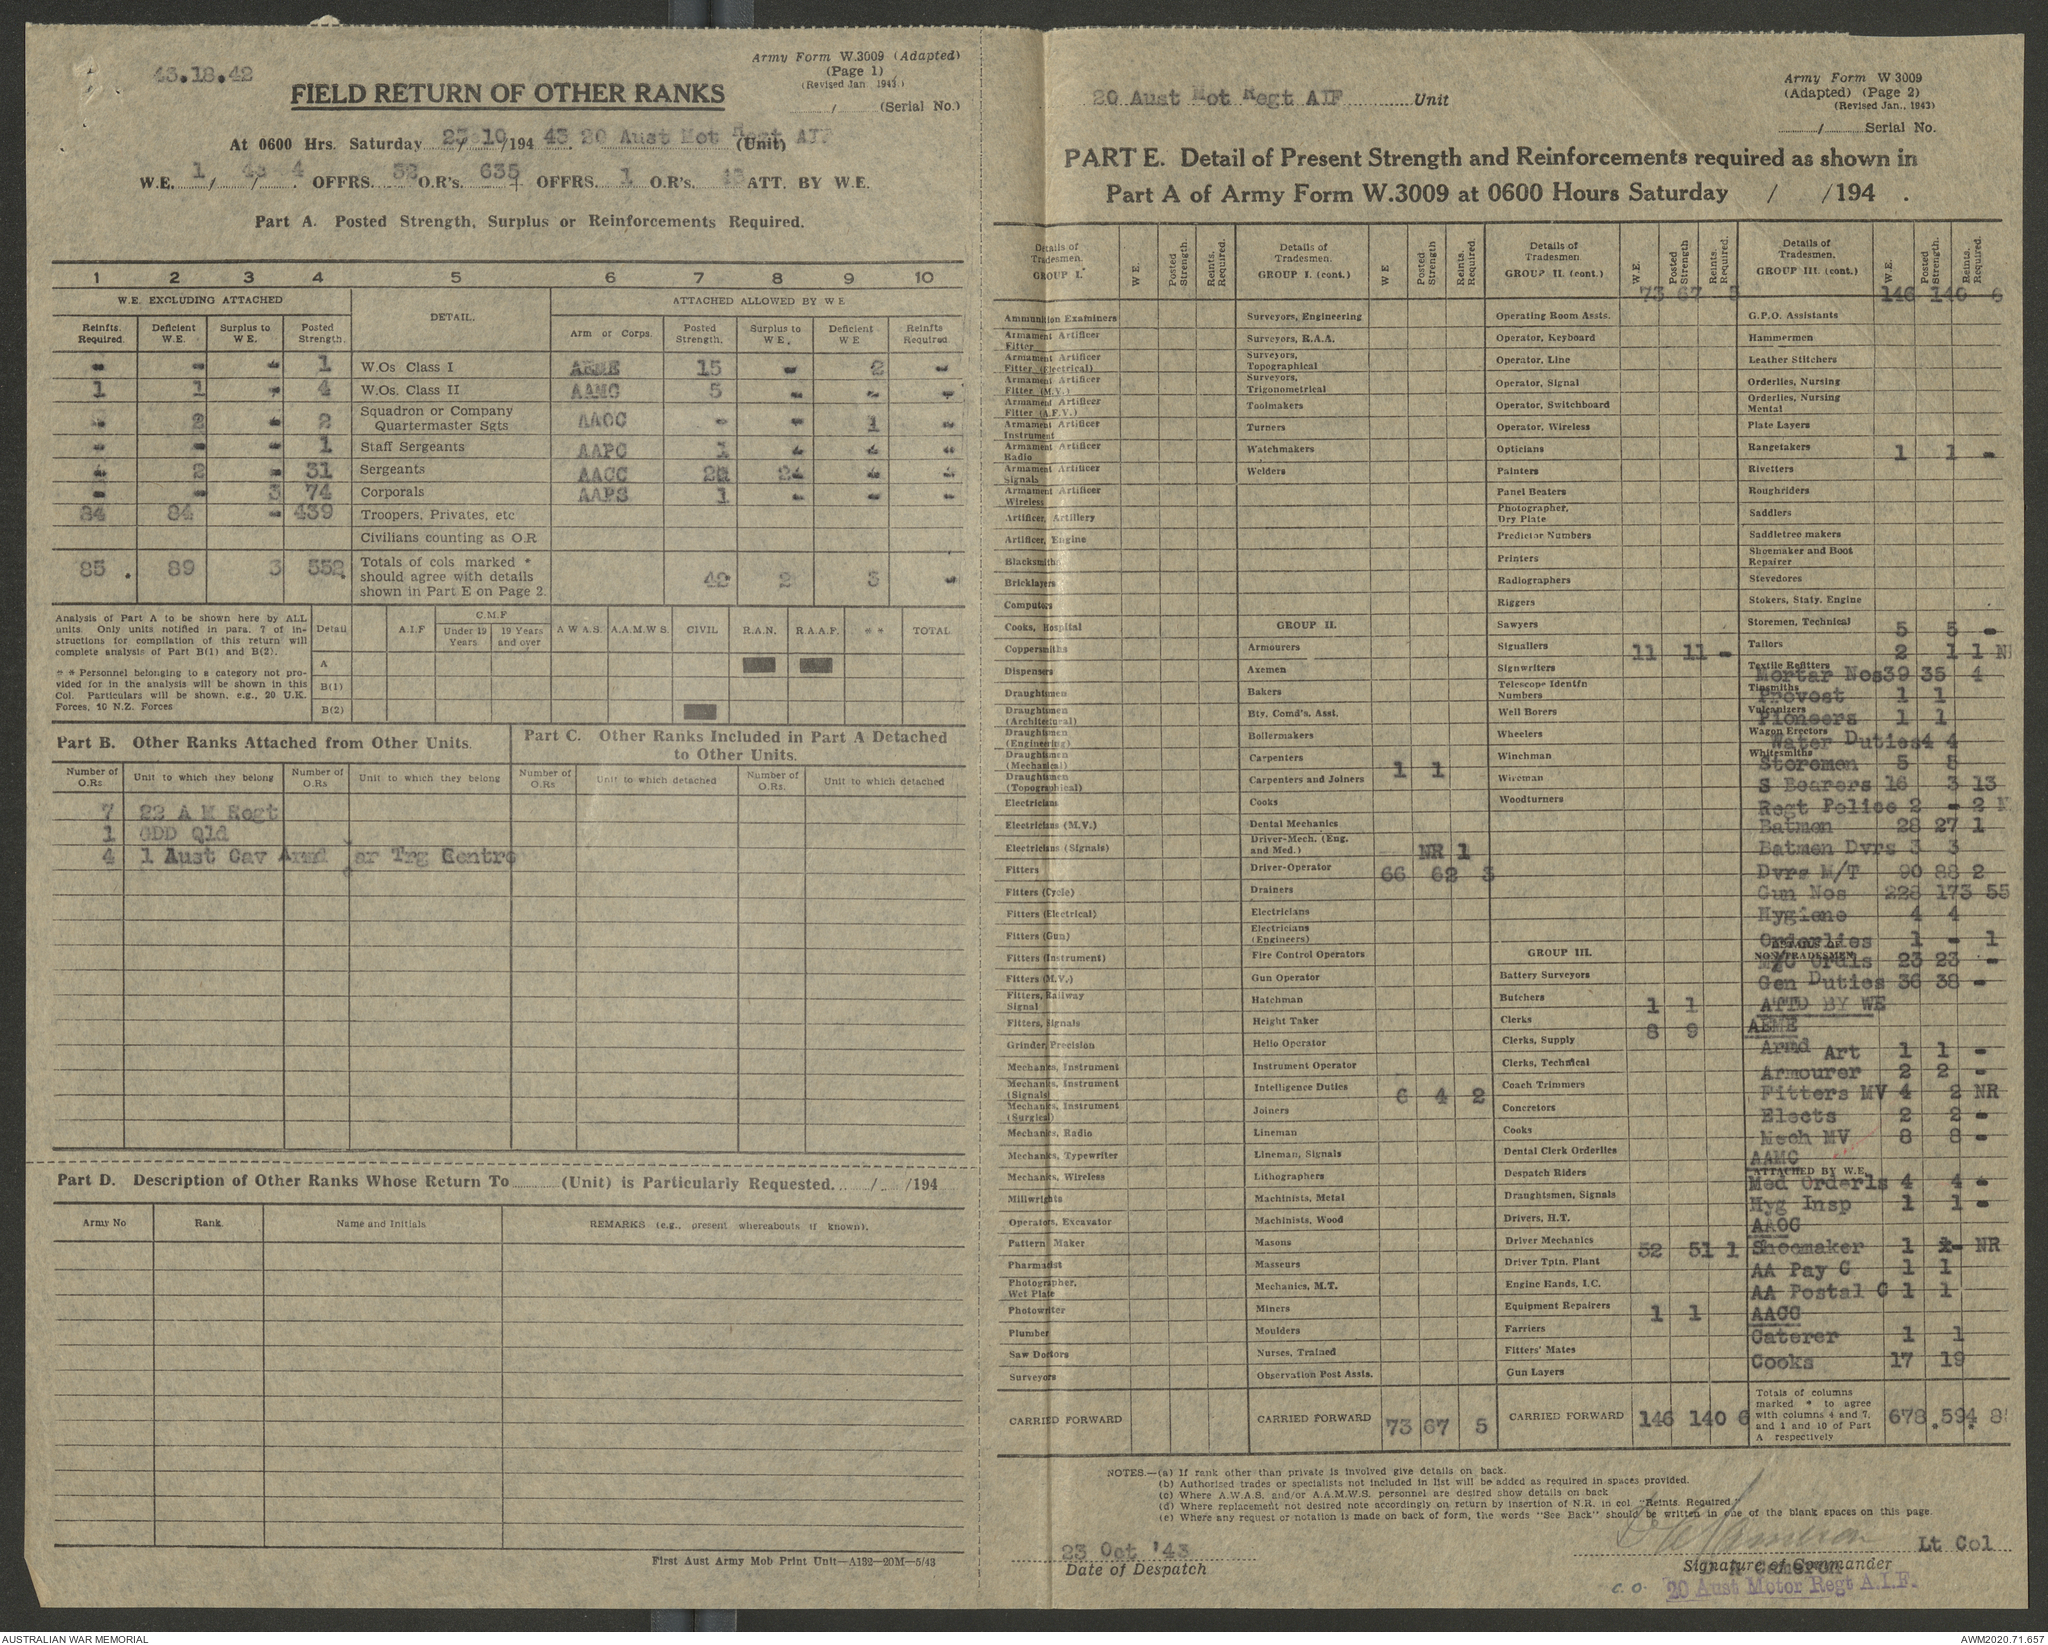 43.18.42
Army Form W.3009 (Adapted)
(Page 1)
(Revised Jan 1943)
FIELD RETURN OF OTHER RANKS
/ (Serial No.)
At 0600 Hrs. Saturday 23/10/194 43 20 Aust Mot Regt AIF (Unit)
W.E. 1 / 43 / 4 . OFFRS. 32 O.R's. 635 + OFFRS. 1 O.R's. 43 ATT. BY W.E.
Part A. Posted Strength, Surplus or Reinforcements Required.
1 2 3 4 5 6 7 8 9 10
W.E. EXCLUDING ATTACHED DETAIL. ATTACHED ALLOWED BY W E
Reinfts. Required. Deficient W.E. Surplus to W E. Posted Strength. Arm or Corps. Posted Strength, Surplus to W E, Deficient W E Reinfts Required.
- - - 1 W.Os Class I AEME 15 - 2 -
1 1 - 4 W.Os. Class II AAMC 5 - - -
- 2 - 2 Squadron or Company Quartermaster Sgts AAOC - - 1 -
- - - 1 Staff Sergeants AAPC 1 - - -
- 2 - 31 Sergeants AACC 20 2 - -
- - 3 74 Corporals AAPS 1 - - -
84 84 - 439 Troopers, Privates, etc
Civilians counting as O.R
85 . 89 3 552. Totals of cols marked * should agree with details shown in Part E on Page 2. 42 2 3 -
Analysis of Part A to be shown here by ALL units. Only units notified in para. 7 of instructions for compilation of this return will complete analysis of Part B(1) and B(2).
* * Personnel belonging to a category not provided for in the analysis will be shown in this Col. Particulars will be shown, e.g., 20 U.K. Forces, 10 N.Z. Forces
Detail A.I.F C.M.F Under 19 Years 19 Years and over A W A S. A.A.M.W S. CIVIL R.A.N. R.A.A.F. * * TOTAL
A
B(1)
B(2)
Part B. Other Ranks Attached from Other Units.
Part C. Other Ranks Included in Part A Detached to Other Units.
Number of O.Rs Unit to which they belong Number of O.Rs Unit to which they belong Number of O.Rs Unit to which detached Number of O.Rs. Unit to which detached
7 22 A M Regt
1 GDD Qld
4 1 Aust Cav Armd Car Trg Centre
Part D. Description of Other Ranks Whose Return To (Unit) is Particularly Requested. / /194
Army No Rank. Name and Initials REMARKS (e.g., present whereabouts if known).
First Aust Army Mob Print Unit—A132—20M—5/43
20 Aust Mot Regt AIF Unit
Army Form W 3009
(Adapted) (Page 2)
(Revised Jan., 1943)
/ Serial No.
PART E. Detail of Present Strength and Reinforcements required as shown in
Part A of Army Form W.3009 at 0600 Hours Saturday / /194 .
Details of Tradesmen. GROUP I. W E. Posted Strength. Reints. Required.
Ammunition Examiners
Armament Artificer Fitter
Armament Artificer Fitter (Electrical)
Armament Artificer Fitter (M.V.)
Armament Artificer Fitter (A.F.V.)
Armament Artificer Instrument
Armament Artificer Radio
Armament Artificer Signals
Armament Artificer Wireless
Artificer, Artillery
Artificer, Engine
Blacksmiths
Bricklayers
Computors
Cooks, Hospital
Coppersmiths
Dispensers
Draughtmen
Draughtmen (Architectural)
Draughtmen (Engineering)
Draughtmen (Mechanical)
Draughtmen (Topographical)
Electricians
Electricians (M.V.)
Electricians (Signals)
Fitters
Fitters (Cycle)
Fitters (Electrical)
Fitters (Gun)
Fitters (Instrument)
Fitters (M.V.)
Fitters, Railway Signal
Fitters, Signals
Grinder, Precision
Mechanics, Instrument
Mechanics, Instrument (Signals)
Mechanics, Instrument (Surgical)
Mechanics, Radio
Mechanics, Typewriter
Mechanics, Wireless
Millwrights
Operators, Excavator
Pattern Maker
Pharmacist
Photographer, Wet Plate
Photowriter
Plumber
Saw Doctors
Surveyors
CARRIED FORWARD
Details of Tradesmen. GROUP I. (cont.) W E Posted Strength Reints. Required.
Surveyors, Engineering
Surveyors, R.A.A.
Surveyors, Topographical
Surveyors, Trigonometrical
Toolmakers
Turners
Watchmakers
Welders
GROUP II.
Armourers
Axemen
Bakers
Bty. Comd's. Asst.
Boilermakers
Carpenters
Carpenters and Joiners 1 1
Cooks
Dental Mechanics
Driver-Mech. (Eng. and Med.) NR 1
Driver-Operator 66 62 3
Drainers
Electricians
Electricians (Engineers)
Fire Control Operators
Gun Operator
Hatchman
Height Taker
Helio Operator
Instrument Operator
Intelligence Duties 6 4 2
Joiners
Lineman
Lineman, Signals
Lithographers
Machinists, Metal
Machinists, Wood
Masons
Masseurs
Mechanics, M.T.
Miners
Moulders
Nurses, Trained
Observation Post Assts.
CARRIED FORWARD 73 67 5
Details of Tradesmen. GROUP II. (cont.) W.E. Posted Strength Reints. Required.
73 67 5
Operating Room Assts.
Operator, Keyboard
Operator, Line
Operator, Signal
Operator, Switchboard
Operator, Wireless
Opticians
Painters
Panel Beaters
Photographer, Dry Plate
Predictor Numbers
Printers
Radiographers
Riggers
Sawyers
Signallers 11 11 -
Signwriters
Telescope Identfn Numbers
Well Borers
Wheelers
Winchman
Wireman
Woodturners
GROUP III.
Battery Surveyors
Butchers 1 1
Clerks 8 9
Clerks, Supply
Clerks, Technical
Coach Trimmers
Concretors
Cooks
Dental Clerk Orderlies
Despatch Riders
Draughtsmen, Signals
Drivers, H.T.
Driver Mechanics 52 51 1
Driver Tptn, Plant
Engine Hands, I.C.
Equipment Repairers 1 1
Farriers
Fitters' Mates
Gun Layers
CARRIED FORWARD 146 140 6
Details of Tradesmen. GROUP III. (cont.) W.E. Posted Strength. Reints. Required.
146 140 6
G.P.O. Assistants
Hammermen
Leather Stitchers
Orderlies, Nursing
Orderlies, Nursing Mental
Plate Layers
Rangetakers 1 1 -
Rivetters
Roughriders
Saddlers
Saddletree makers
Shoemaker and Boot Repairer
Stevedores
Stokers, Staty. Engine
Storemen, Technical 5 5 -
Tailors 2 1 1 N
Textile Refitters
Mortar Nos 39 35 4
Tinsmiths
Provost 1 1
Vulcanizers
Pioneers 1 1
Wagon Erectors
Water Duties 4 4
Whitesmiths
Storemen 5 5
S Bearers 16 3 13
Regt Police 2 - 2 N
Batmen 28 27 1
Batmen Dvrs 3 3
Dvrs M/T 90 88 2
Gun Nos 228 173 55
Hygiene 4 4
Orderlies 1 - 1
NON-TRADESMEN
M/C Ordls 23 23 -
Gen Duties 36 38 -
ATTD BY WE
AEME
Armd Art 1 1 -
Armourer 2 2 -
Fitters MV 4 2 NR
Elects 2 2 -
Mech MV 8 8 -
AAMC
ATTACHED BY W.E.
Med Orderls 4 4 -
Hyg Insp 1 1 -
AAOC
Shoemaker 1 - NR
AA Pay C 1 1
AA Postal C 1 1
AACC
Caterer 1 1
Cooks 17 19
Totals of columns marked * to agree with columns 4 and 7, and 1 and 10 of Part A respectively 678 . 594 . 8
NOTES.—(a) If rank other than private is involved give details on back.
(b) Authorised trades or specialists not included in list will be added as required in spaces provided.
(c) Where A.W.A.S. and/or A.A.M.W.S. personnel are desired show details on back
(d) Where replacement not desired note accordingly on return by insertion of N.R. in col "Reints. Required."
(e) Where any request or notation is made on back of form, the words "See Back" should be written in one of the blank spaces on this page.
23 Oct '43
Date of Despatch
Lt Col
Signature of Commander
Cameron
C.O. 20 Aust Motor Regt A.I.F.
AUSTRALIAN WAR MEMORIAL
AWM2020.71.657